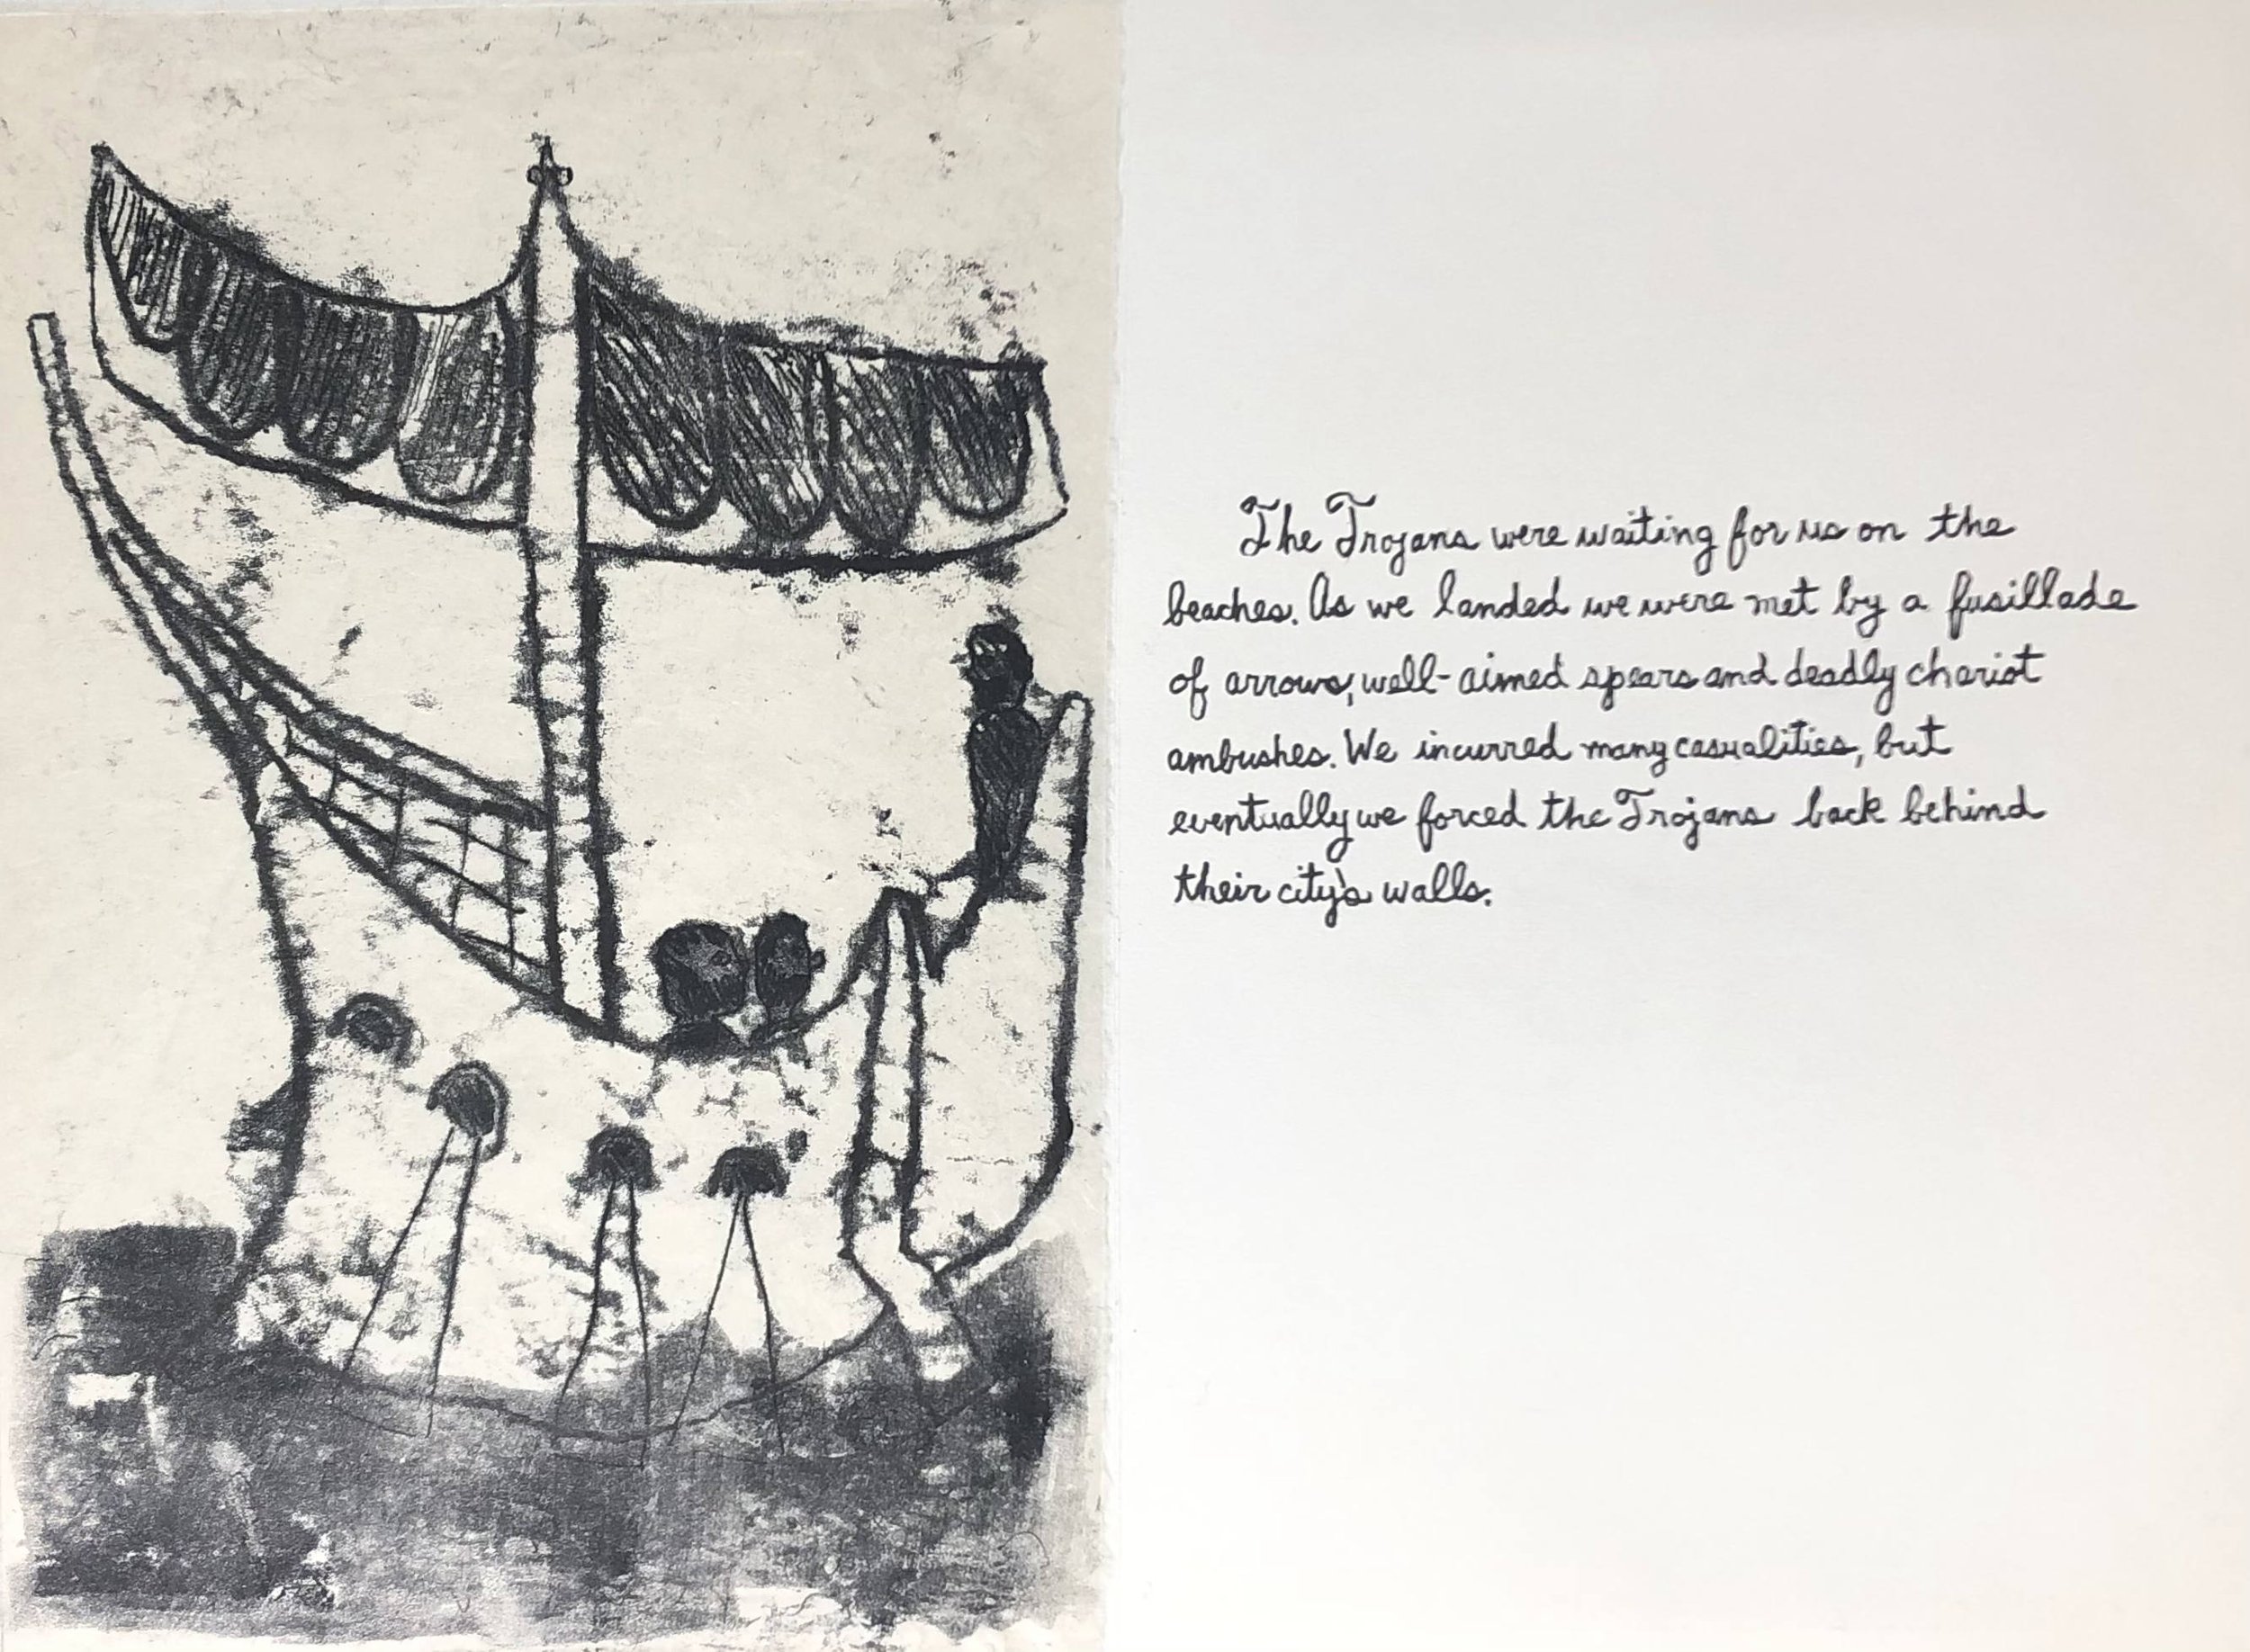 The Trojans were waiting for us on the
beaches. As we landed we were met by a fusillade
of arrows, well-aimed spears and deadly chariot
ambushes. We incurred many casualities, but
eventually we forced the Trojans back behind
their city's walls.